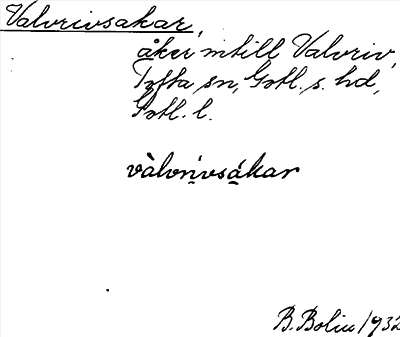 Valvrivsakar,
åker intill Valvriv,
Tofta sn, Gotl. s. hd,
Gotl. l.
vàlvri̱vsá̱kar
B. Bolin 1932